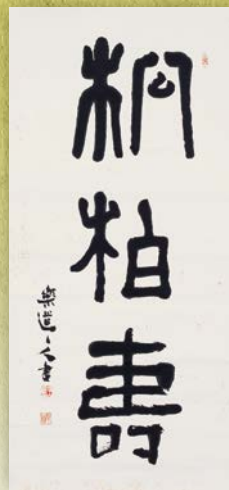 松柏壽
樂道人書